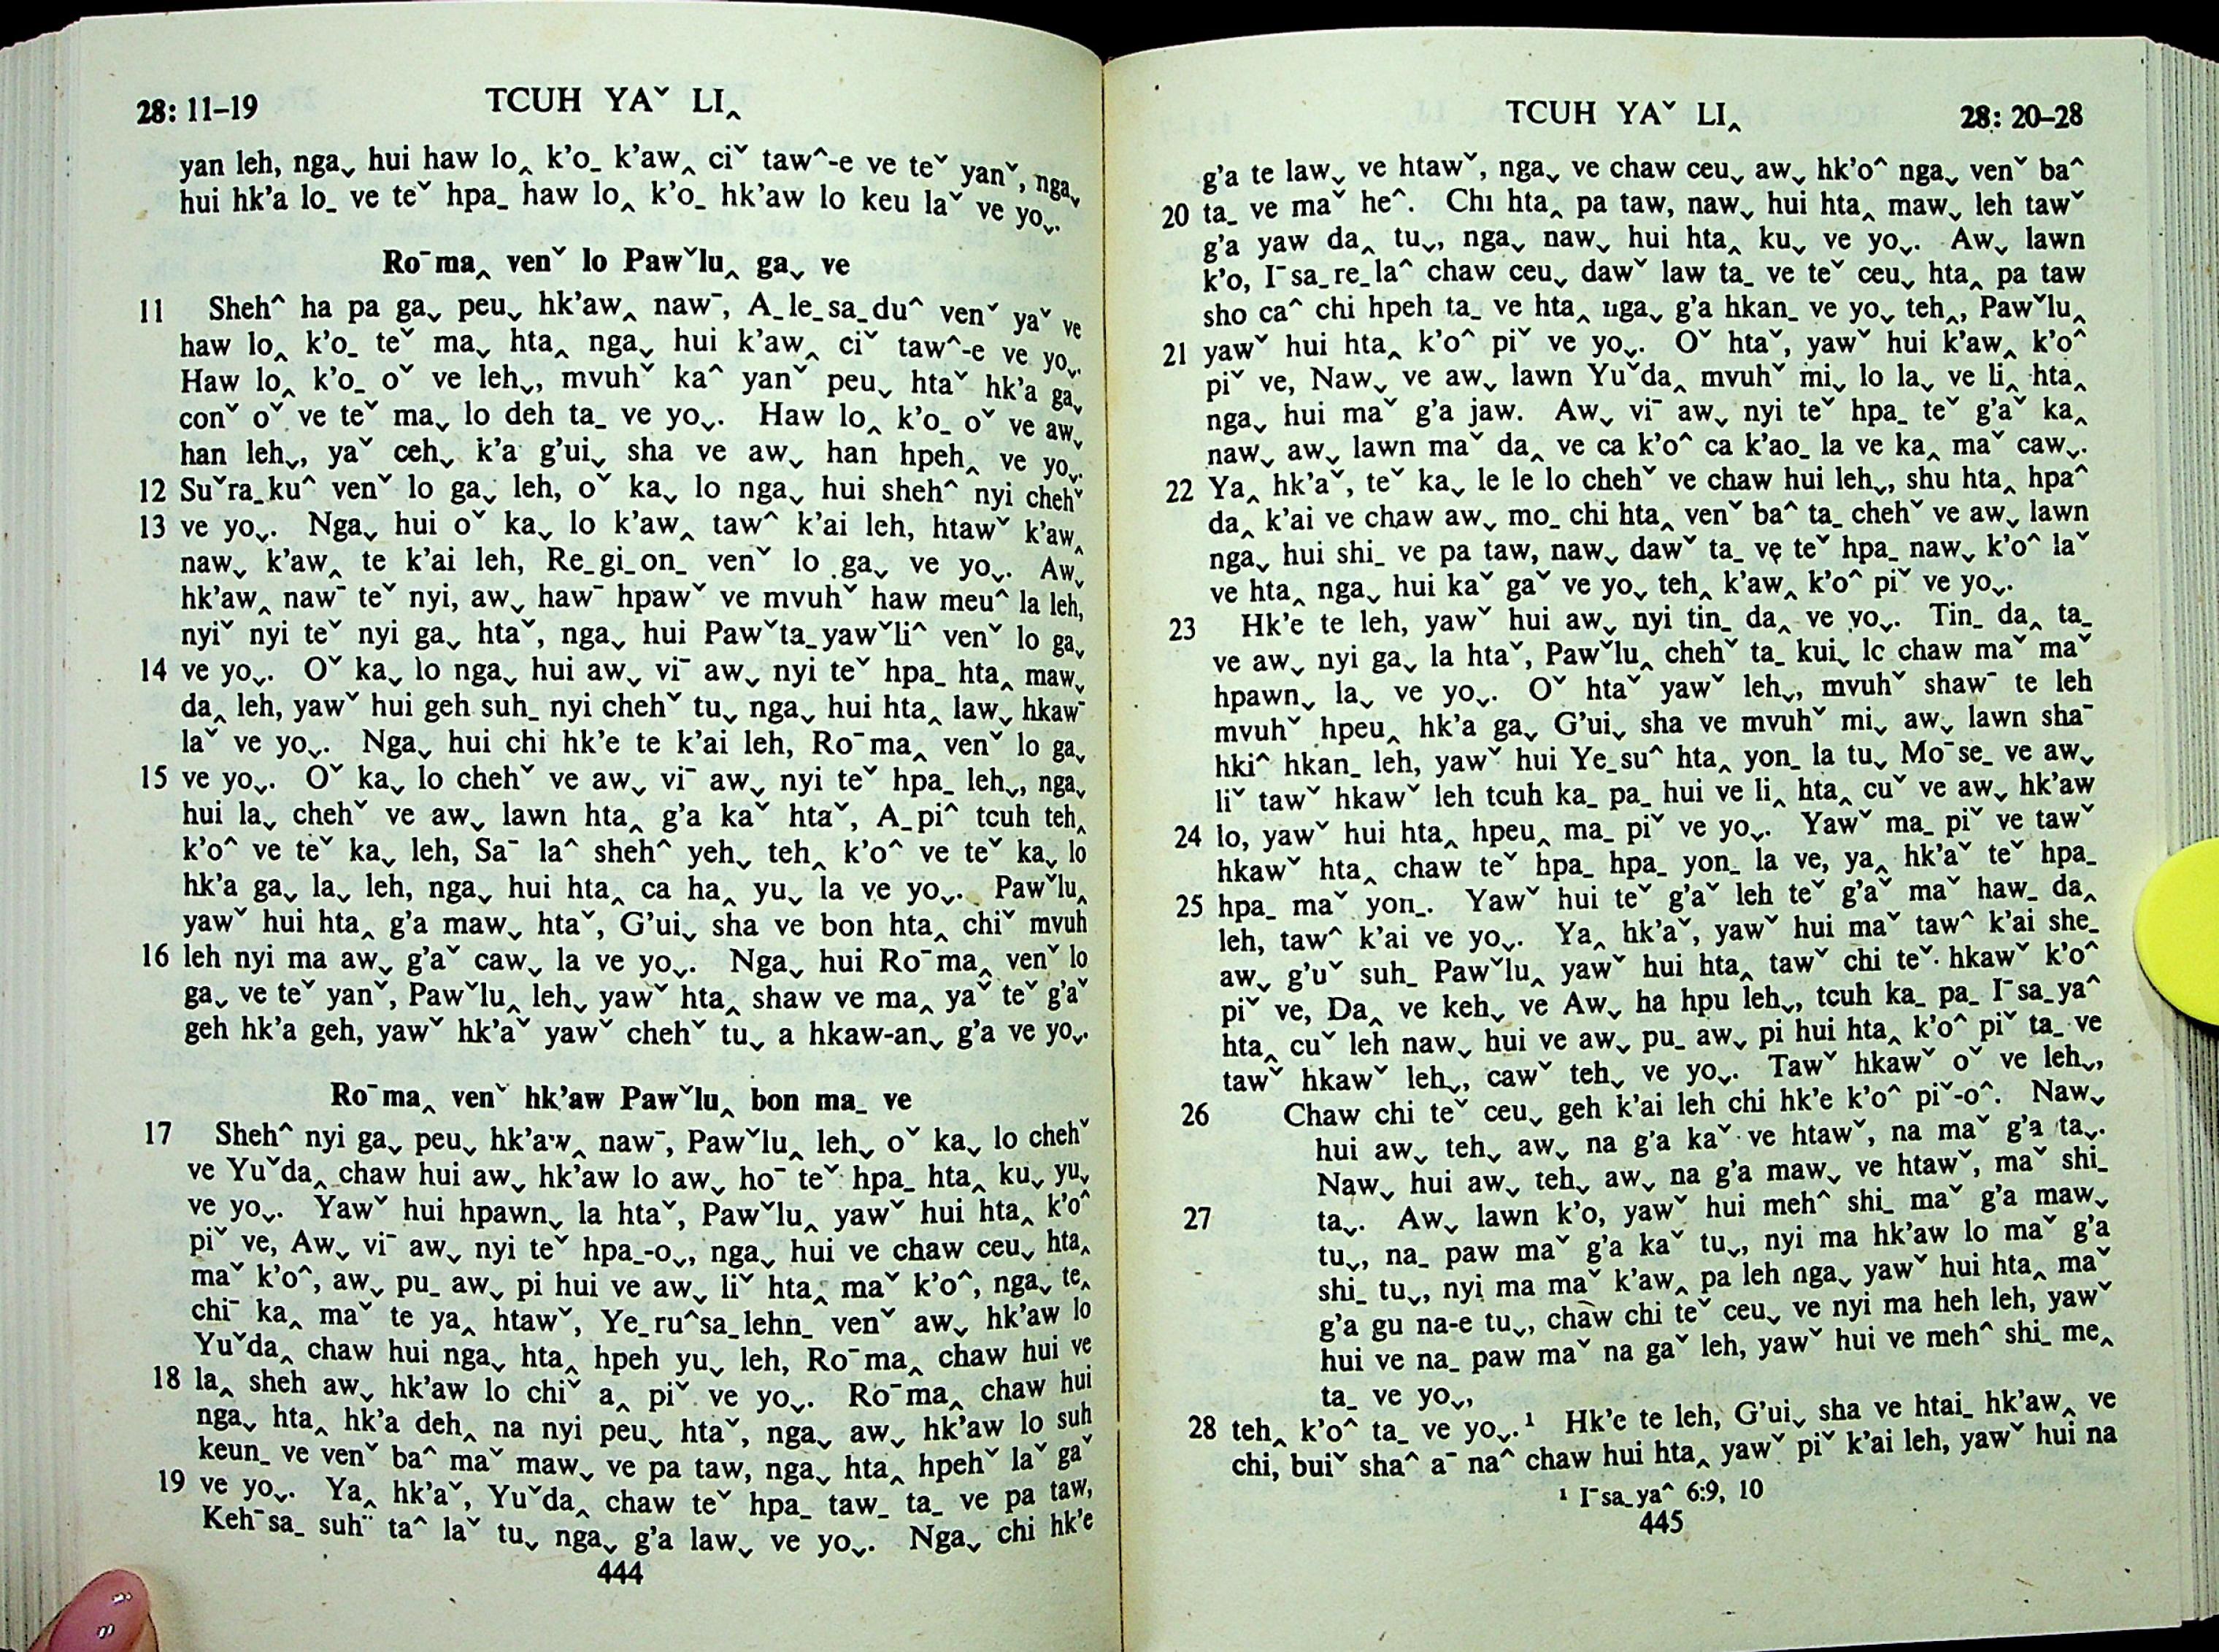 28: 11–19
TCUH YAˇ LI‸
yan leh, ngaˬ hui haw lo‸ k'oˍ k'aw‸ ciˇ tawˆ-e ve teˇ yanˇ, ngaˬ
hui hk'a loˍ ve teˇ hpaˍ haw lo‸ k'oˍ hk'aw lo keu laˇ ve yoˬ.
Roˉma‸ venˇ lo Pawˇlu‸ gaˬ ve
11 Shehˆ ha pa gaˬ peuˬ hk'aw‸ nawˉ, Aˍleˍsaˍduˆ venˇ yaˇ ve
haw lo‸ k'oˍ teˇ maˬ hta‸ ngaˬ hui k'aw‸ ciˇ tawˆ-e ve yoˬ.
Haw lo‸ k'oˍ oˇ ve lehˬ, mvuhˇ kaˆ yanˇ peuˬ htaˇ hk'a gaˬ
conˇ oˇ ve teˇ maˬ lo deh taˍ ve yoˬ. Haw lo‸ k'oˍ oˇ ve awˬ
han lehˬ, yaˇ cehˬ k'a g'uiˬ sha ve awˬ han hpeh‸ ve yoˬ.
12 Suˇraˍkuˆ venˇ lo gaˬ leh, oˇ kaˬ lo ngaˬ hui shehˆ nyi chehˇ
13 ve yoˬ. Ngaˬ hui oˇ kaˬ lo k'aw‸ tawˆ k'ai leh, htawˇ k'aw‸
nawˬ k'aw‸ te k'ai leh, Reˍgiˍonˍ venˇ lo gaˬ ve yoˬ. Awˬ
hk'aw‸ nawˉ teˇ nyi, awˬ hawˉ hpawˇ ve mvuhˇ haw meuˆ la leh,
nyiˇ nyi teˇ nyi gaˬ htaˇ, ngaˬ hui Pawˇtaˍyawˇliˆ venˇ lo gaˬ
14 ve yoˬ. Oˇ kaˬ lo ngaˬ hui awˬ viˉ awˬ nyi teˇ hpaˍ hta‸ mawˬ
da‸ leh, yawˇ hui geh suhˍ nyi chehˇ tuˬ ngaˬ hui hta‸ lawˬ hkawˉ
laˇ ve yoˬ. Ngaˬ hui chi hk'e te k'ai leh, Roˉma‸ venˇ lo gaˬ
15 ve yoˬ. Oˇ kaˬ lo chehˇ ve awˬ viˉ awˬ nyi teˇ hpaˍ lehˬ, ngaˬ
hui laˬ chehˇ ve awˬ lawn hta‸ g'a kaˇ htaˇ, Aˍpiˆ tcuh teh‸
k'oˆ ve teˇ kaˬ leh, Saˉ laˆ shehˆ yehˬ teh‸ k'oˆ ve teˇ kaˬ lo
hk'a gaˬ laˬ leh, ngaˬ hui hta‸ ca ha‸ yuˬ la ve yoˬ. Pawˇlu‸
yawˇ hui hta‸ g'a mawˬ htaˇ, G'uiˬ sha ve bon hta‸ chiˇ mvuh
16 leh nyi ma awˬ g'aˇ cawˬ la ve yoˬ. Ngaˬ hui Roˉma‸ venˇ lo
gaˬ ve teˇ yanˇ, Pawˇlu‸ lehˬ yawˇ hta‸ shaw ve ma‸ yaˇ teˇ g'aˇ
geh hk'a geh, yawˇ hk'aˇ yawˇ chehˇ tuˬ a hkaw-anˬ g'a ve yoˬ.
Roˉma‸ venˇ hk'aw Pawˇlu‸ bon maˍ ve
17 Shehˆ nyi gaˬ peuˬ hk'aw‸ nawˉ, Pawˇlu‸ lehˬ oˇ kaˬ lo chehˇ
ve Yuˇda‸ chaw hui awˬ hk'aw lo awˬ hoˉ teˇ hpaˍ hta‸ kuˬ yuˬ
ve yoˬ. Yawˇ hui hpawnˬ la htaˇ, Pawˇlu‸ yawˇ hui hta‸ k'oˆ
piˇ ve, Awˬ viˉ awˬ nyi teˇ hpaˍ-oˬ, ngaˬ hui ve chaw ceuˬ hta‸
maˇ k'oˆ, awˬ puˍ awˬ pi hui ve awˬ liˇ hta‸ maˇ k'oˆ, ngaˬ te‸
chiˉ ka‸ maˇ te ya‸ htawˇ, Yeˍruˆsaˍlehnˍ venˇ awˬ hk'aw lo
Yuˇda‸ chaw hui ngaˬ hta‸ hpeh yuˬ leh, Roˉma‸ chaw hui ve
18 la‸ sheh awˬ hk'aw lo chiˇ a‸ piˇ ve yoˬ. Roˉma‸ chaw hui
ngaˬ hta‸ hk'a deh‸ na nyi peuˬ htaˇ, ngaˬ awˬ hk'aw lo suh
keunˍ ve venˇ baˆ maˇ mawˬ ve pa taw, ngaˬ hta‸ hpehˇ laˇ gaˇ
19 ve yoˬ. Ya‸ hk'aˇ, Yuˇda‸ chaw teˇ hpaˍ tawˍ taˍ ve pa taw,
Kehˉsaˍ suhˉ taˆ laˇ tuˬ ngaˬ g'a lawˬ ve yoˬ. Ngaˬ chi hk'e
444
TCUH YAˇ LI‸
28: 20–28
g'a te lawˬ ve htawˇ, ngaˬ ve chaw ceuˬ awˬ hk'oˆ ngaˬ venˇ baˆ
20 taˍ ve maˇ heˆ. Chi hta‸ pa taw, nawˬ hui hta‸ mawˬ leh tawˇ
g'a yaw da‸ tuˬ, ngaˬ nawˬ hui hta‸ kuˬ ve yoˬ. Awˬ lawn
k'o, Iˉsaˍreˍlaˆ chaw ceuˬ dawˇ law taˍ ve teˇ ceuˬ hta‸ pa taw
sho caˆ chi hpeh taˍ ve hta‸ ngaˬ g'a hkanˍ ve yoˬ teh‸, Pawˇlu‸
21 yawˇ hui hta‸ k'oˆ piˇ ve yoˬ. Oˇ htaˇ, yawˇ hui k'aw‸ k'oˆ
piˇ ve, Nawˬ ve awˬ lawn Yuˇda‸ mvuhˇ miˬ lo laˬ ve li‸ hta‸
ngaˬ hui maˇ g'a jaw. Awˬ viˉ awˬ nyi teˇ hpaˍ teˇ g'aˇ ka‸
nawˬ awˬ lawn maˇ da‸ ve ca k'oˆ ca k'aoˍ la ve ka‸ maˇ cawˬ.
22 Ya‸ hk'aˇ, teˇ kaˬ le le lo chehˇ ve chaw hui lehˬ, shu hta‸ hpaˆ
da‸ k'ai ve chaw awˬ moˍ chi hta‸ venˇ baˆ taˍ chehˇ ve awˬ lawn
ngaˬ hui shiˍ ve pa taw, nawˬ dawˇ taˍ ve teˇ hpaˍ nawˬ k'oˆ laˇ
ve hta‸ ngaˬ hui kaˇ gaˇ ve yoˬ teh‸ k'aw‸ k'oˆ piˇ ve yoˬ.
23 Hk'e te leh, yawˇ hui awˬ nyi tinˍ da‸ ve yoˬ. Tinˍ da‸ taˍ
ve awˬ nyi gaˬ la htaˇ, Pawˇlu‸ chehˇ taˍ kuiˬ lo chaw maˇ maˇ
hpawnˬ laˬ ve yoˬ. Oˇ htaˇ yawˇ lehˬ, mvuhˇ shawˉ te leh
mvuhˇ hpeu‸ hk'a gaˬ G'uiˬ sha ve mvuhˇ miˬ awˬ lawn shaˉ
hkiˆ hkanˍ leh, yawˇ hui Yeˍsuˆ hta‸ yonˍ la tuˬ Moˉseˍ ve awˬ
liˇ tawˇ hkawˇ leh tcuh kaˍ paˍ hui ve li‸ hta‸ cuˇ ve awˬ hk'aw
24 lo, yawˇ hui hta‸ hpeu‸ maˍ piˇ ve yoˬ. Yawˇ maˍ piˇ ve tawˇ
hkawˇ hta‸ chaw teˇ hpaˍ hpaˍ yonˍ la ve, ya‸ hk'aˇ teˇ hpaˍ
25 hpaˍ maˇ yonˍ. Yawˇ hui teˇ g'aˇ leh teˇ g'aˇ maˇ hawˍ da‸
leh, tawˆ k'ai ve yoˬ. Ya‸ hk'aˇ, yawˇ hui maˇ tawˆ k'ai sheˍ
awˬ g'uˇ suhˍ Pawˇlu‸ yawˇ hui hta‸ tawˇ chi teˇ hkawˇ k'oˆ
piˇ ve, Da‸ ve keh‸ ve Awˬ ha hpu lehˬ, tcuh kaˍ paˍ Iˉsaˍyaˆ
hta‸ cuˇ leh nawˬ hui ve awˬ puˍ awˬ pi hui hta‸ k'oˆ piˇ taˍ ve
tawˇ hkawˇ lehˬ, cawˇ tehˬ ve yoˬ. Tawˇ hkawˇ oˇ ve lehˬ,
26 Chaw chi teˇ ceuˬ geh k'ai leh chi hk'e k'oˆ piˇ-oˆ. Nawˬ
hui awˬ tehˬ awˬ na g'a kaˇ ve htawˇ, na maˇ g'a taˬ.
Nawˬ hui awˬ tehˬ awˬ na g'a mawˬ ve htawˇ, maˇ shiˍ
27 taˬ. Awˬ lawn k'o, yawˇ hui mehˆ shiˍ maˇ g'a mawˬ
tuˬ, naˍ paw maˇ g'a kaˇ tuˬ, nyi ma hk'aw lo maˇ g'a
shiˍ tuˬ, nyi ma maˇ k'aw‸ pa leh ngaˬ yawˇ hui hta‸ maˇ
g'a gu na-e tuˬ, chaw chi teˇ ceuˬ ve nyi ma heh leh, yawˇ
hui ve naˍ paw maˇ na gaˇ leh, yawˇ hui ve mehˆ shiˍ me‸
taˍ ve yoˬ,
28 teh‸ k'oˆ taˍ ve yoˬ.¹ Hk'e te leh, G'uiˬ sha ve htaiˍ hk'aw‸ ve
chi, buiˇ shaˆ aˉ naˆ chaw hui hta‸ yawˇ piˇ k'ai leh, yawˇ hui na
¹ Iˉsaˍyaˆ 6:9, 10
445